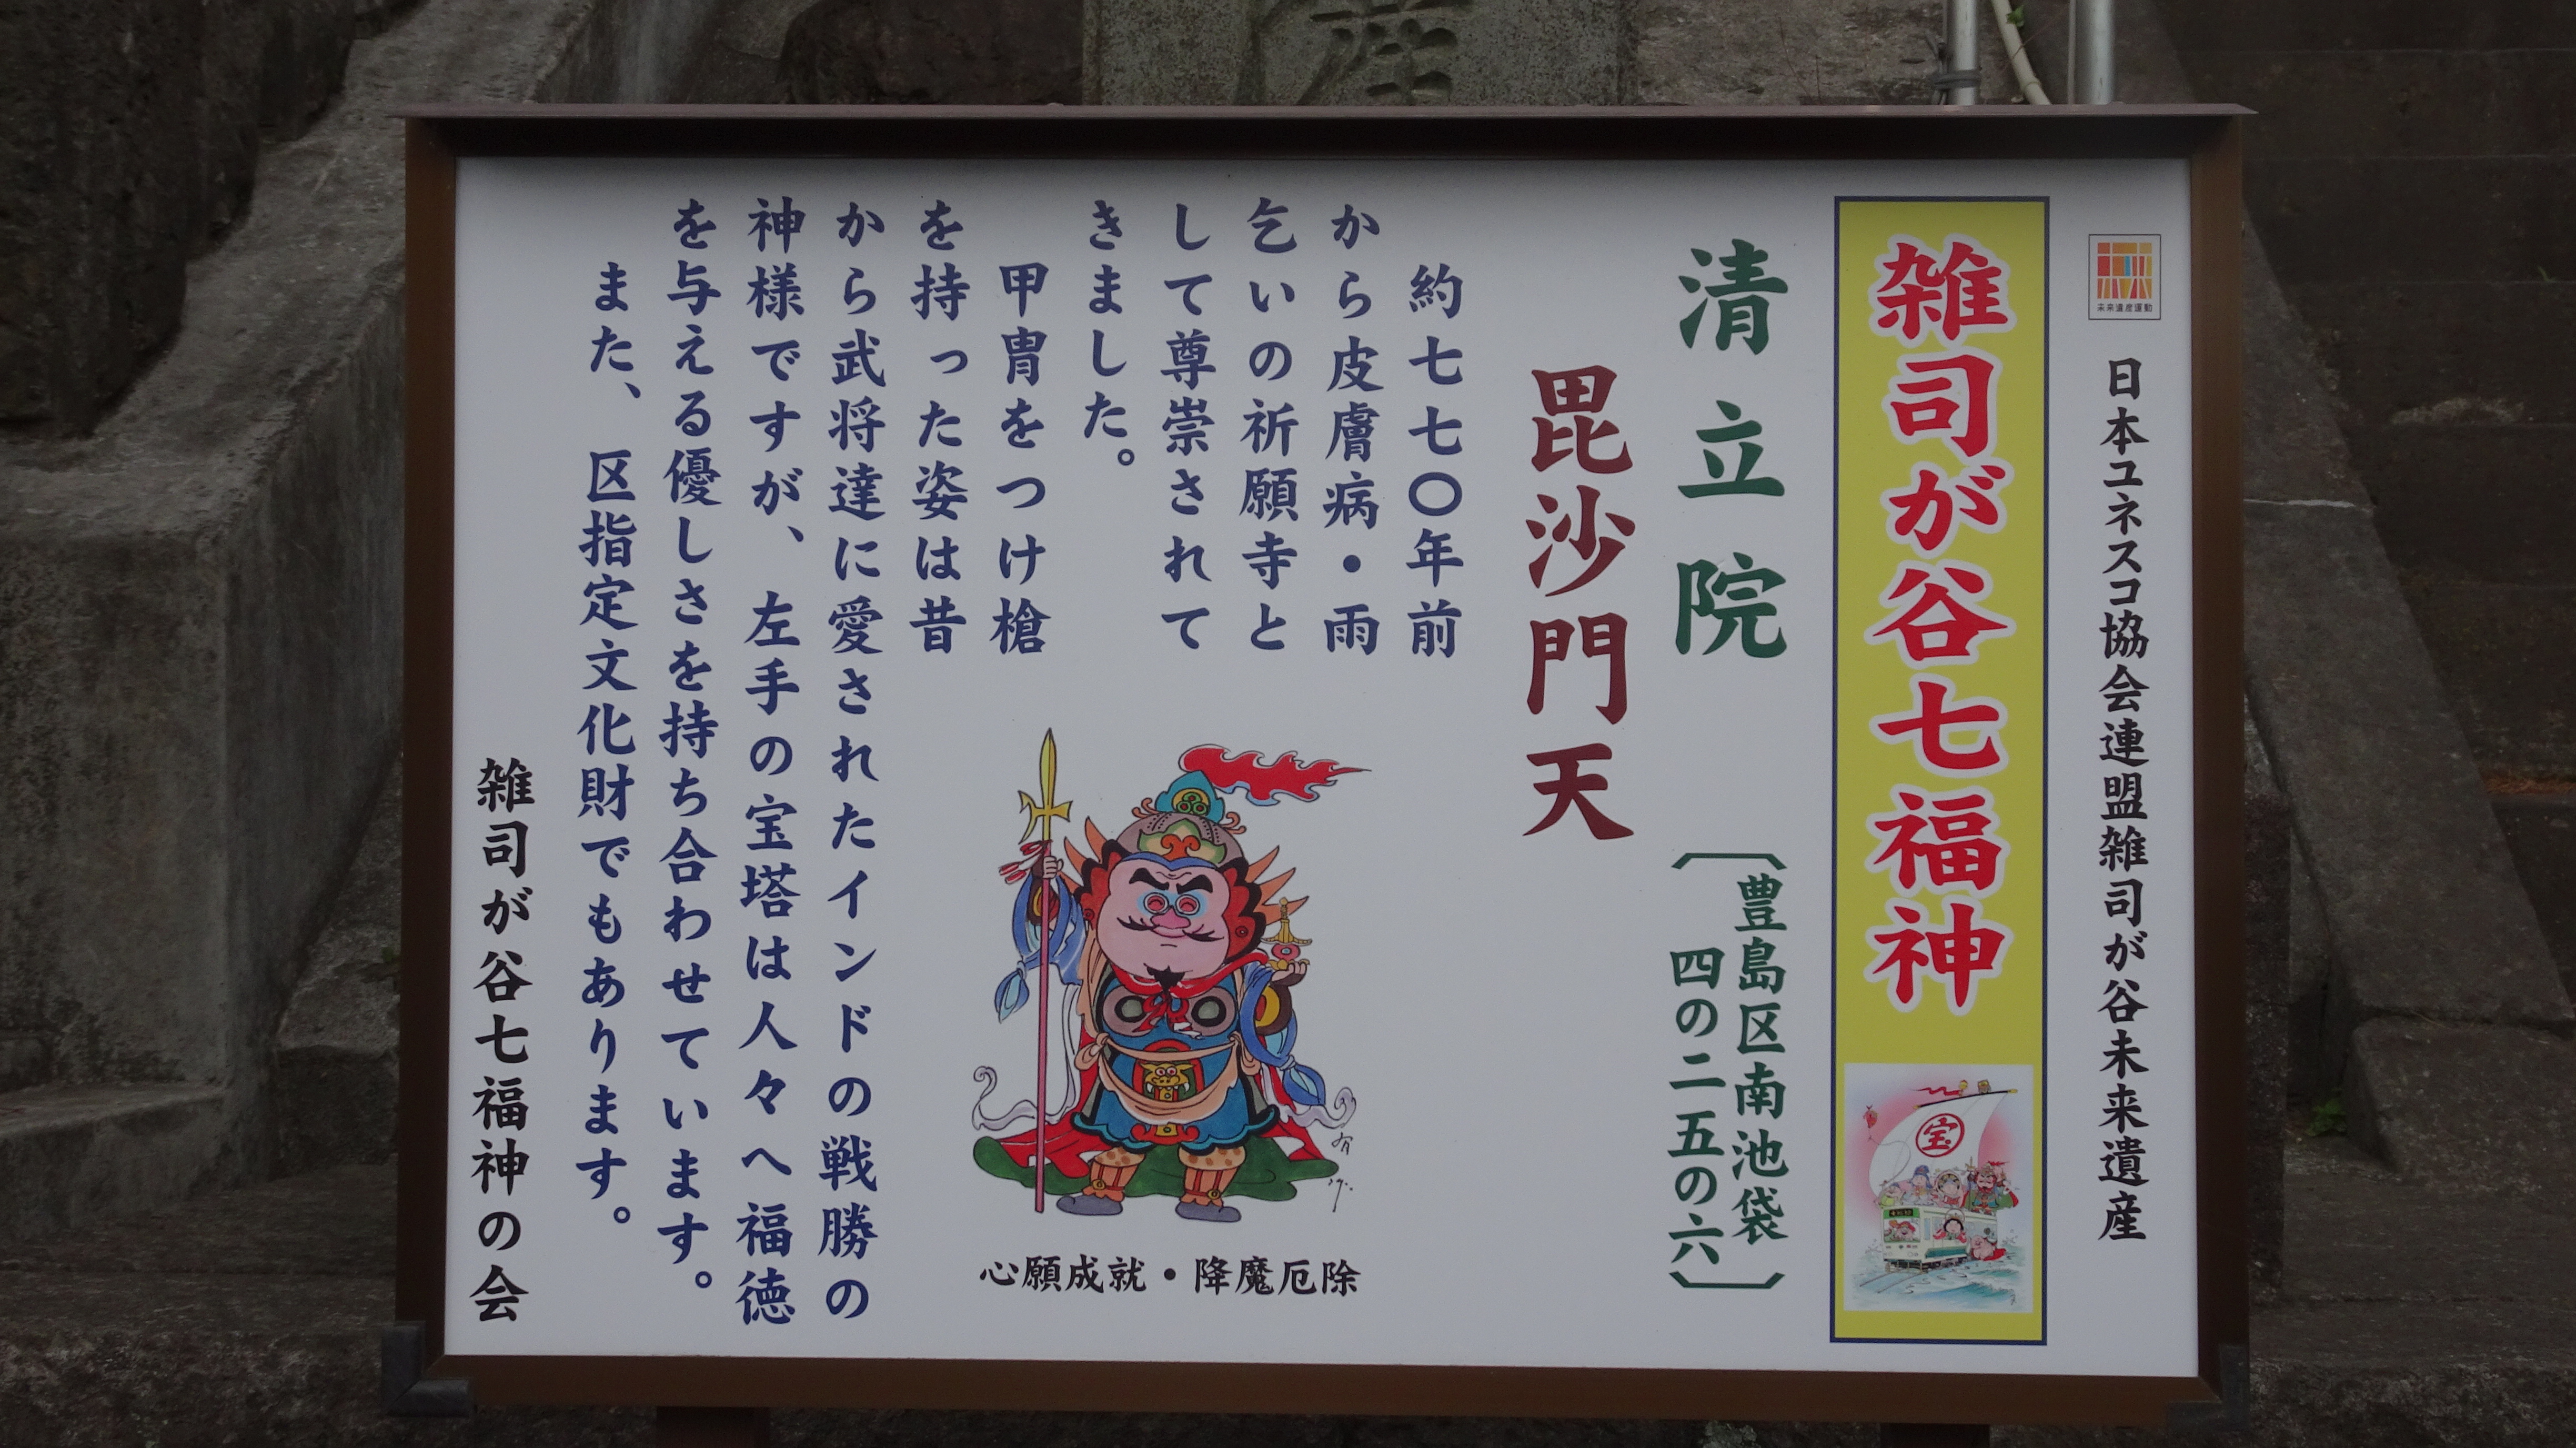 未来遺産運動
日本ユネスコ協会連盟雑司が谷未来遺産
雑司が谷七福神
宝
清立院
〔豊島区南池袋
四の二五の六〕
毘沙門天
約七七〇年前
から皮膚病・雨
乞いの祈願寺と
して尊崇されて
きました。
甲冑をつけ槍
を持った姿は昔
から武将達に愛されたインドの戦勝の
神様ですが、左手の宝塔は人々へ福徳
を与える優しさを持ち合わせています。
また、区指定文化財でもあります。
心願成就・降魔厄除
雑司が谷七福神の会